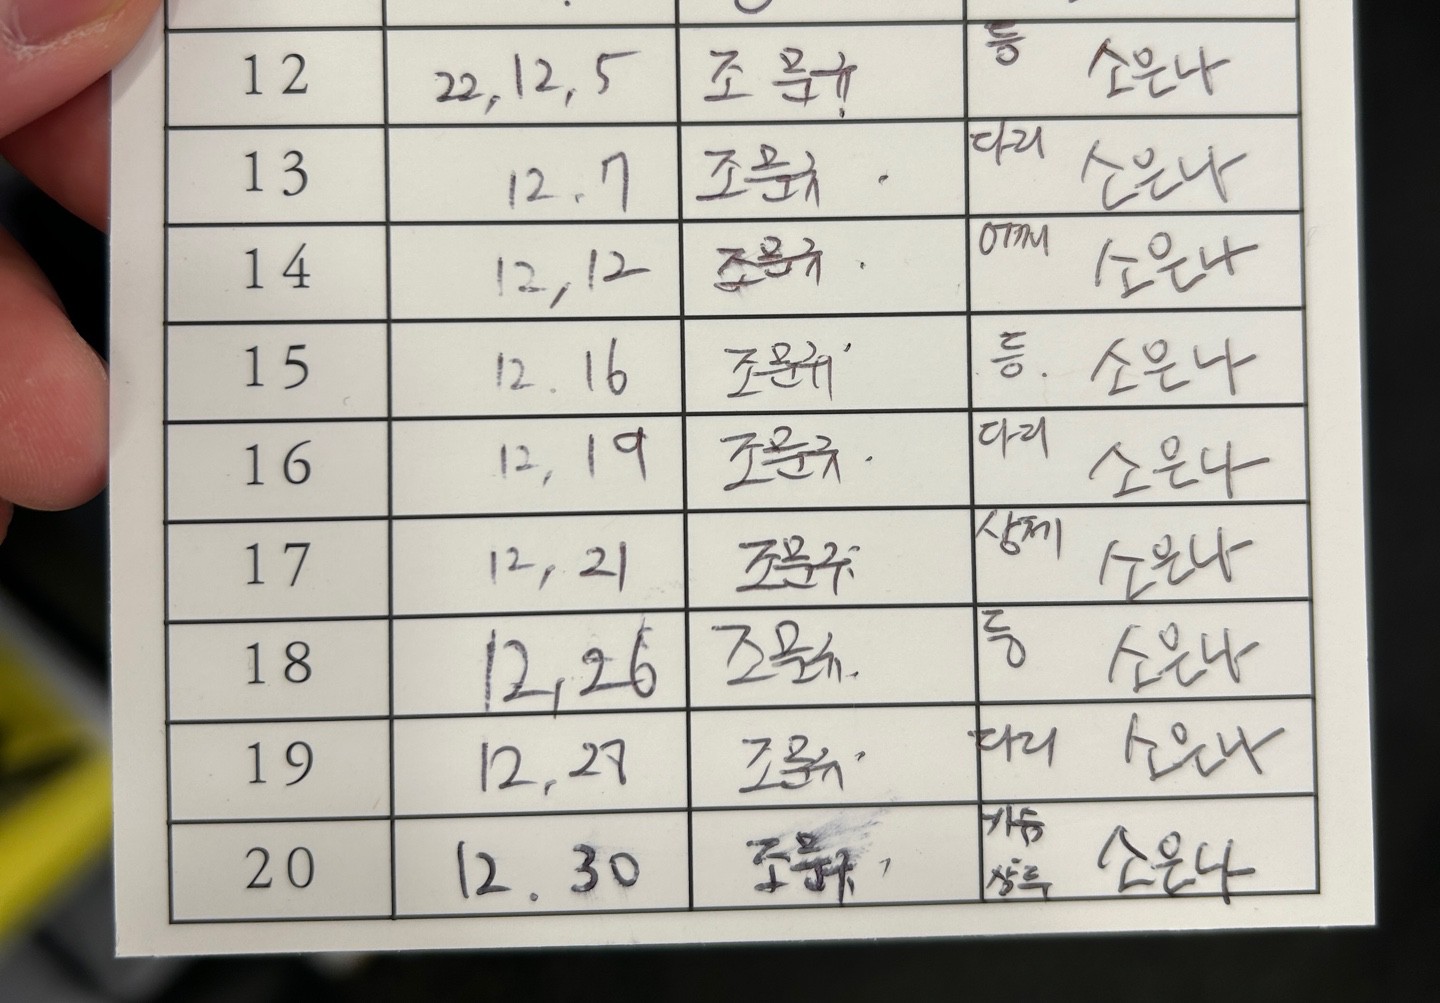 12 22,12,5 조문규 등 소은나
13 12.7 조문규 다리 소은나
14 12,12 조문규 어깨 소은나
15 12.16 조문규 등 소은나
16 12,19 조문규 다리 소은나
17 12,21 조문규 상체 소은나
18 12,26 조문규 등 소은나
19 12,27 조문규 다리 소은나
20 12.30 조문규 가슴 소은나